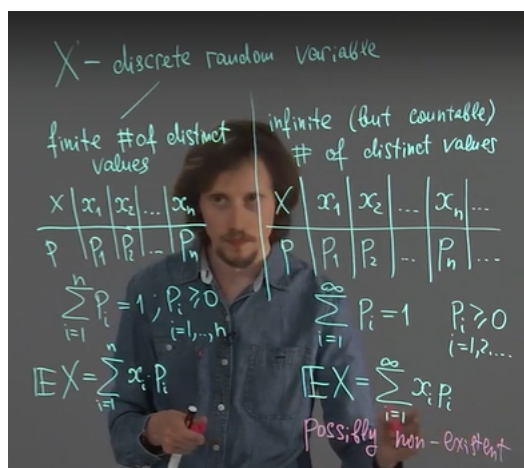 X - discrete random variable
finite # of distinct values
X | x₁ | x₂ | ... | xₙ
P | P₁ | P₂ | ... | Pₙ
∑ᵢ₌₁ⁿ Pᵢ = 1 ; Pᵢ ⩾ 0
i=1,..,n
𝔼X = ∑ᵢ₌₁ⁿ xᵢ · Pᵢ
infinite (but countable)
# of distinct values
X | x₁ | x₂ | ... | xₙ | ...
P | P₁ | P₂ | ... | Pₙ | ...
∑ᵢ₌₁^∞ Pᵢ = 1 Pᵢ ⩾ 0
i=1,2....
𝔼X = ∑ᵢ₌₁^∞ xᵢ pᵢ
Possibly non-existent